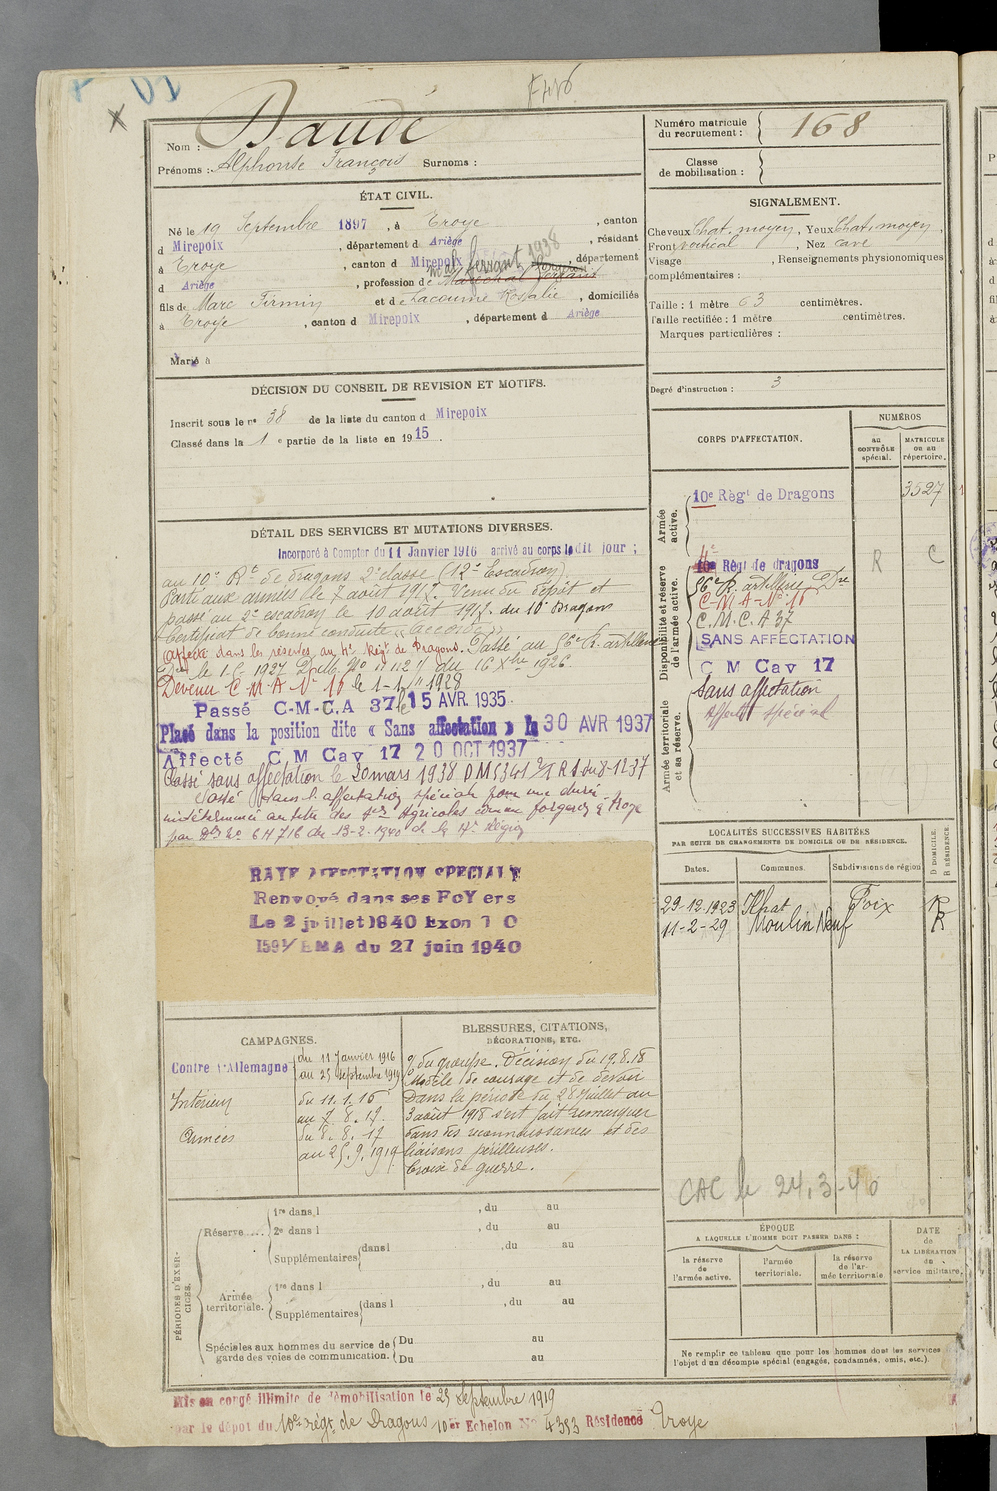 Nom : Daudé
Prénoms : Alphonse François Surnoms :
Numéro matricule du recrutement : 168
Classe de mobilisation :
ÉTAT CIVIL.
Né le 19 Septembre 1897, à Troye, canton
d Mirepoix, département d Ariège, résidant
à Troye, canton d Mirepoix, département
d Ariège, profession de Maréchal ferrant
ferrant 1938
fils de Marc Firmin et de Lacoume Rosalie, domiciliés
à Troye, canton d Mirepoix, département d Ariège
Marié à
SIGNALEMENT.
Cheveux Chat. moyen, Yeux Chat. moyen,
Front vertical, Nez cave
Visage , Renseignements physionomiques
complémentaires :
Taille : 1 mètre 63 centimètres.
Taille rectifiée : 1 mètre centimètres.
Marques particulières :
Degré d'instruction : 3
DÉCISION DU CONSEIL DE REVISION ET MOTIFS.
Inscrit sous le n° 38 de la liste du canton d Mirepoix
Classé dans la 1 e partie de la liste en 1915.
DÉTAIL DES SERVICES ET MUTATIONS DIVERSES.
Incorporé à Compter du 11 Janvier 1916 arrivé au corps le dit jour ;
au 10e Rt de dragons 2e classe (12e Escadron)
Parti aux armées le 7 août 1917. Venu du dépôt et
passé au 2e escadron le 10 août 1917. du 10e dragons
Certificat de bonne conduite « accordé »
Affecté dans les réserves au 4e Régt de Dragons. Passé au 56e R. artillerie
Dre le 1.1.1927 D. No 11127 du 16 Xbre 1926.
Devenu C.M.A No 16 le 1-1-1928
Passé C-M-C.A 37 le 15 AVR. 1935
Placé dans la position dite « Sans affectation » le 30 AVR 1937
Affecté C M Cav 17 20 OCT 1937
Classé sans affectation le 20 mars 1938 DM 5341 2/1 R1 du 8-12-37
Passé dans l'affectation spéciale pour une durée
indéterminée au titre des Agricoles comme forgeron à Troye
par No 6H716 du 13-2-1940 de la 17e Région
RAYE AFFECTATION SPECIALE
Renvoyé dans ses FoYers
Le 2 juillet 1940 Exon 1 0
1591/EMA du 27 juin 1940
CORPS D'AFFECTATION.
NUMÉROS
au CONTRÔLE spécial.
MATRICULE ou au répertoire.
Armée active.
10e Régt de Dragons 3527
Disponibilité et réserve de l'armée active.
4e Régt de dragons R C
56e R. artillerie Dre
C-M A-No 16
C.M.C.A 37
SANS AFFECTATION
C M Cav 17
Armée territoriale et sa réserve.
Sans affectation
Affecté spécial
LOCALITÉS SUCCESSIVES HABITÉES
PAR SUITE DE CHANGEMENTS DE DOMICILE OU DE RÉSIDENCE.
Dates. Communes. Subdivisions de région D DOMICILE. R RÉSIDENCE.
29-12-1923 Ilhat Foix R
11-2-29 Moulin Neuf R
CAC le 24.3-40
CAMPAGNES.
Contre l'Allemagne du 11 Janvier 1916
au 25 septembre 1919
Intérieur du 11.1.16
au 7.8.17.
Armées du 8.8.17
au 25.9.1919
BLESSURES, CITATIONS,
DÉCORATIONS, ETC.
du groupe. Décision du 19.8.18
Modèle de courage et de devoir
Dans la période du 28 juillet au
3 août 1918 s'est fait remarquer
dans des reconnaissances et des
liaisons périlleuses.
Croix de guerre.
PÉRIODES D'EXERCICES.
Réserve.... 1re dans l , du au
2e dans l , du au
Supplémentaires dans l , du au
Armée territoriale. 1re dans l , du au
Supplémentaires dans l , du au
Spéciales aux hommes du service de garde des voies de communication. Du au
Du au
ÉPOQUE
A LAQUELLE L'HOMME DOIT PASSER DANS :
la réserve de l'armée active.
l'armée territoriale.
la réserve de l'armée territoriale
DATE de LA LIBÉRATION du service militaire.
Ne remplir ce tableau que pour les hommes dont les services
l'objet d'un décompte spécial (engagés, condamnés, omis, etc.).
Mis en congé illimité de démobilisation le 25 Septembre 1919
par le dépôt du 10e régt de Dragons 10er Echelon No 4353 Résidence Troye